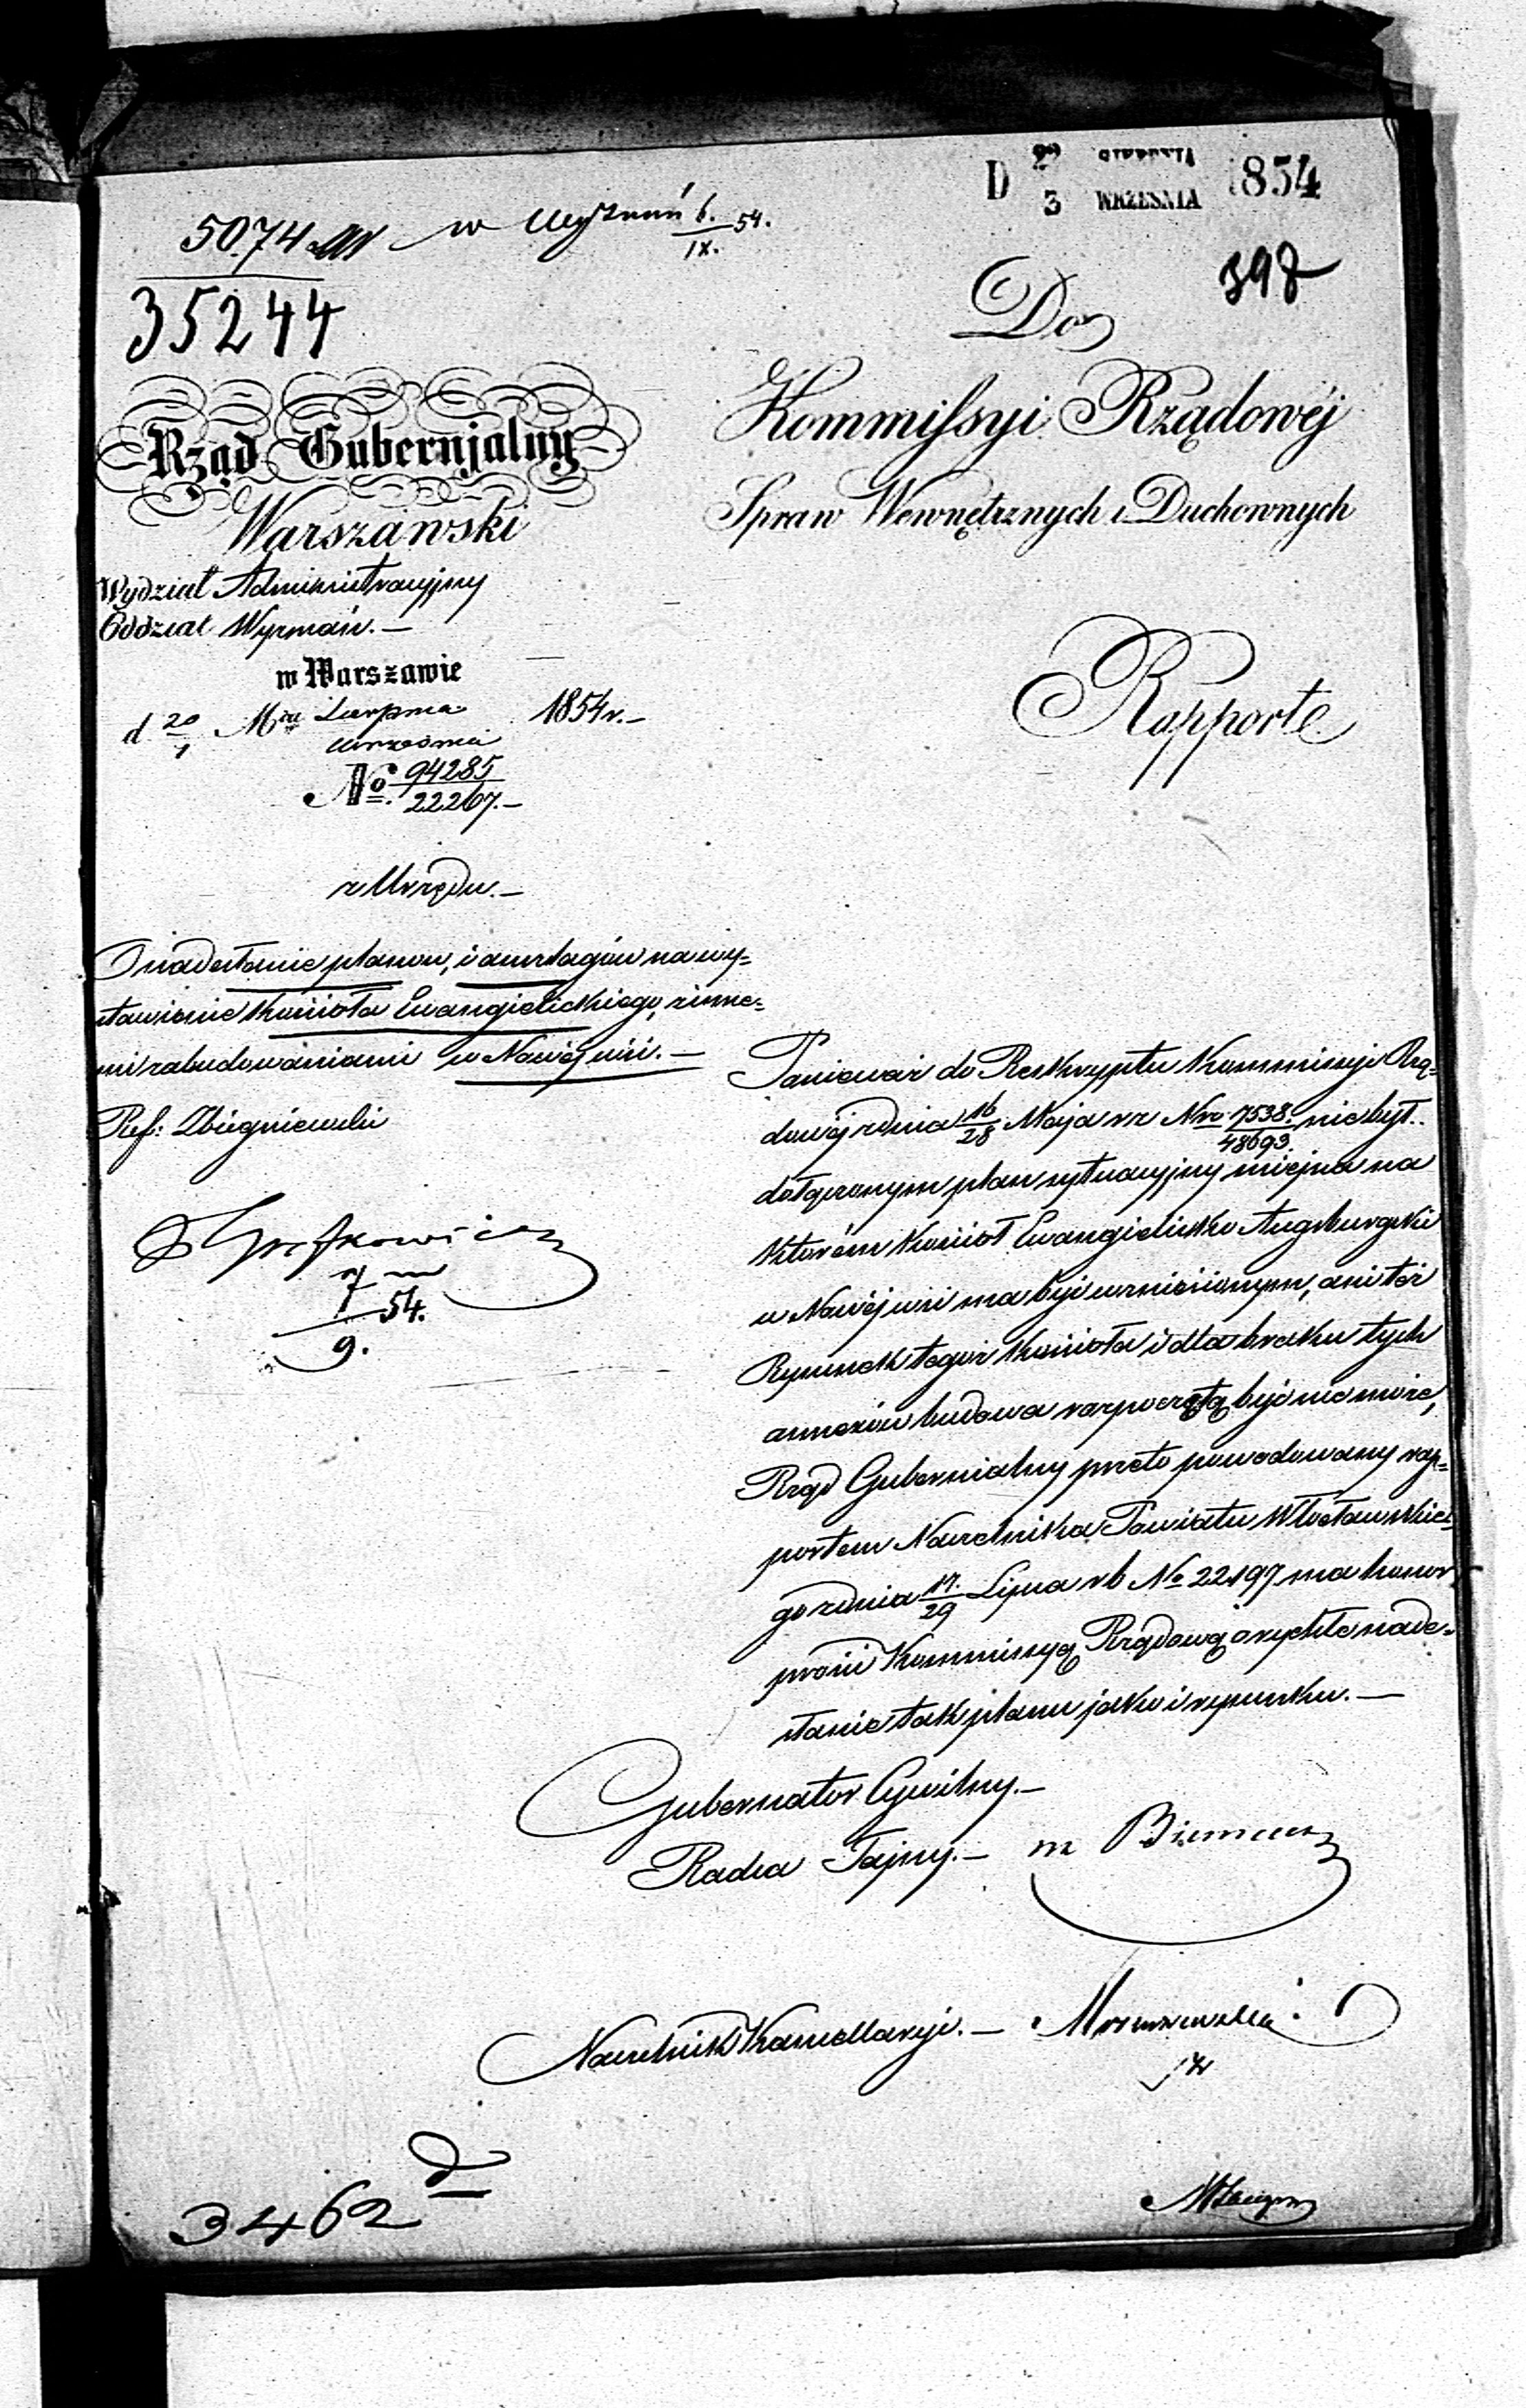 D 3 WRZEŚNIA 1854
5074
w Wyznań 6./IX. 54.
398
35244
Do
Kommissyi Rządowéj
Spraw Wewnętrznych i Duchownych
Rząd Gubernjalny
Warszawski
Wydział Administracyjny
Oddział Wyznań. —
w Warszawie
d 20/1 Mca Sierpnia/Września 1854 r. —
No. 94285/22267. —
Rapport
z Urzędu. —
O nadesłanie planu, i anszlagów na wy=
stawienie Kościoła Ewangielickiego, z inne=
mi zabudowaniami w Nowéj wsi. —
Ref:
Ponieważ do Reskryptu Kommissyi Rzą=
dowéj z dnia 16/28 Maja r z Nro 7538./48693. nie był
dołączonym plan sytuacyjny miejsca na
którém Kościół Ewangielicko Augsburgski
w Nowéj wsi ma być wzniesionym, ani téż
Rysunek tegoż Kościoła i dla braku tych
annexów budowa rozpoczętą być nie może,
Rząd Gubernialny przeto powodowany rap=
portem Naczelnika Powiatu Włocławskie=
go z dnia 17./29 Lipca r b No 22197 ma honor
prosić Kommissyą Rządową o rychłe nade=
słanie tak planu jako i rysunku. —
7/9. 54.
Gubernator Cywilny. —
Radca Tajny. —
Naczelnik Kancellaryi. —
3462